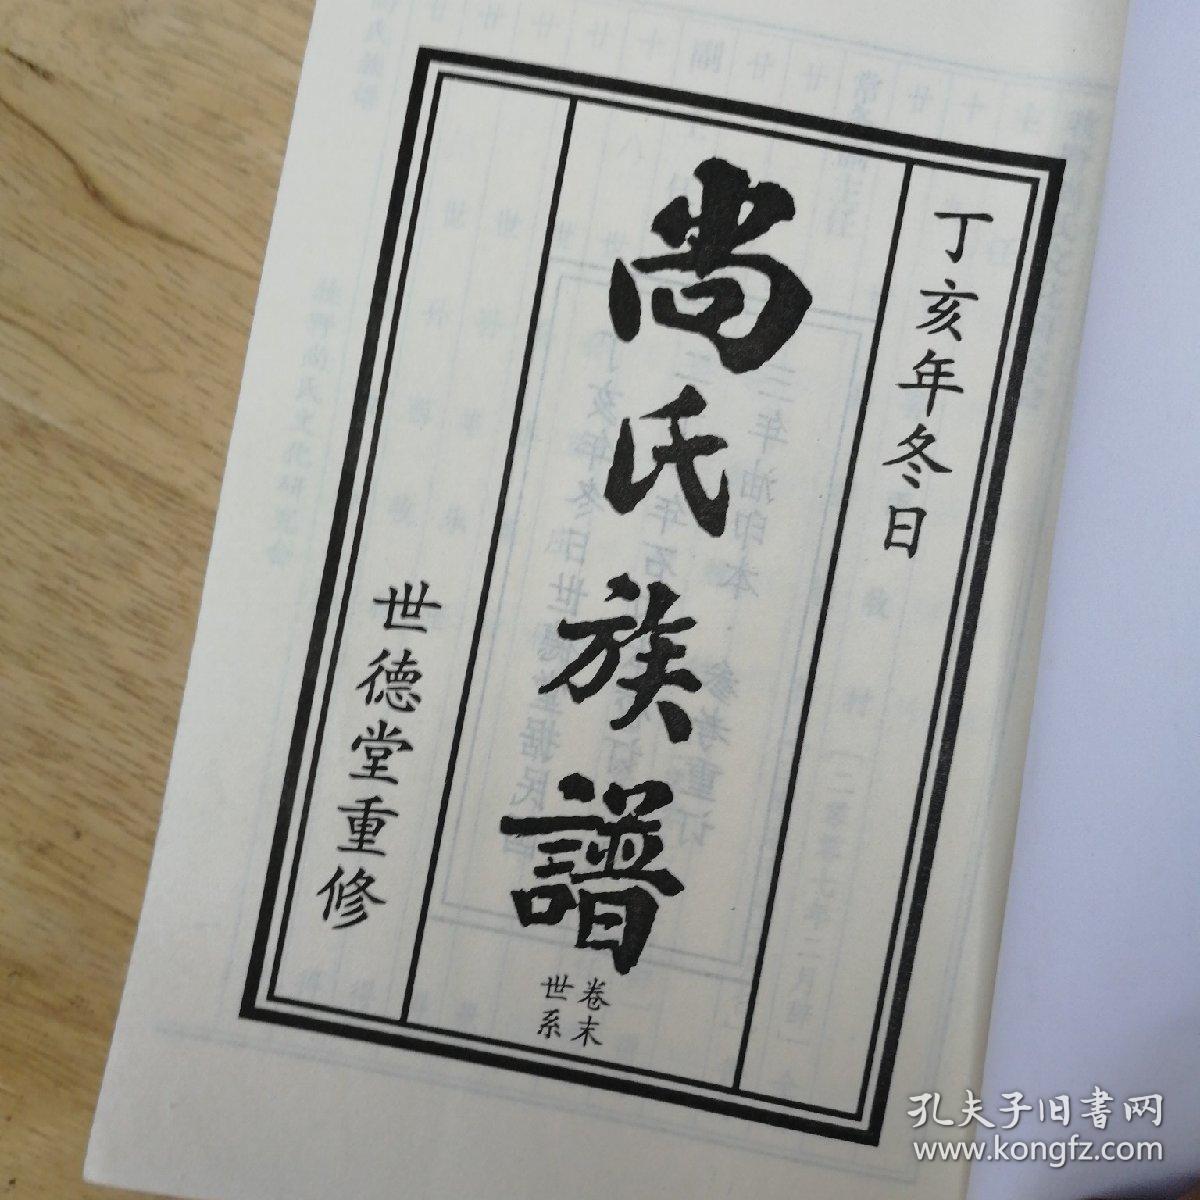 丁亥年冬日
尚氏族譜
卷末
世系
世德堂重修
孔夫子旧書网
www.kongfz.com